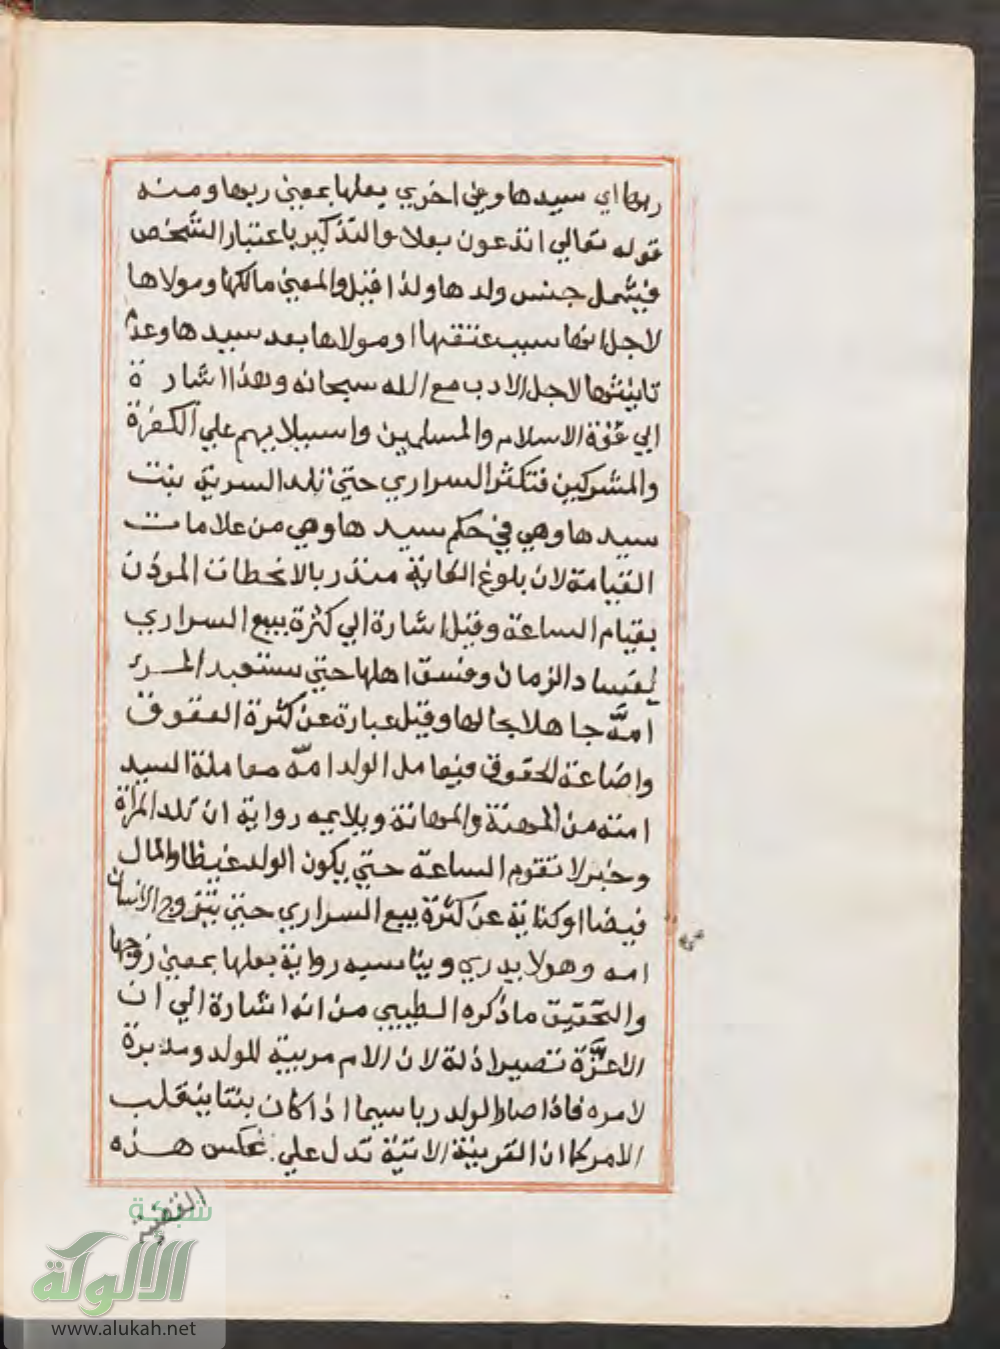 ربها اي سيدها وفي اخري بعلها بمعني ربها ومنه
قوله تعالي اتدعون بعلا والتذكير باعتبار الشخص
فيشمل جنس ولدها ولذا قيل والمعني مالكها ومولاها
لاجل انها سبب عتقها او مولاها بعد سيدها وعدم
تانيثها لاجل الادب مع الله سبحانه وهذا اشارة
الي قوة الاسلام والمسلمين واستيلايهم علي الكفرة
والمشركين فتكثر السراري حتي تلد السرية بنت
سيدها وهي في حكم سيدها وهي من علامات
القيامة لان بلوغ الغاية منذر بالانحطاط الموذن
بقيام الساعة وقيل اشارة الي كثرة بيع السراري
لفساد الزمان وفسق اهلها حتي يستعبد المرء
امه جاهلا بحالها وقيل عبارة عن كثرة العقوق
واضاعة الحقوق فيعامل الولد امه معاملة السيد
امته من المهنة والمهانة ويلايمه رواية ان تلد المراة
وخبر لا تقوم الساعة حتي يكون الولد غيظا والمال
فيضا او كناية عن كثرة بيع السراري حتي يتزوج الانسان
امه وهو لا يدري ويناسبه رواية بعلها بمعني زوجها
والتحقيق ما ذكره الطيبي من انه اشارة الي ان
الاعزة تصير اذلة لان الام مربية للولد ومدبرة
لامره فاذا صار الولد ربا سيما اذا كان بنتا ينقلب
الامر كما ان القرينة الاتية تدل علي عكس هذه
القضية
شبكة
الألوكة
www.alukah.net